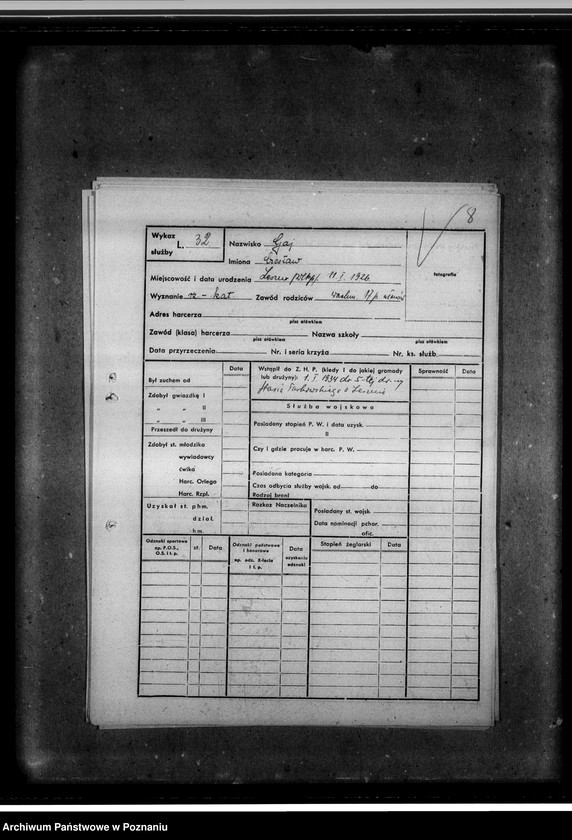 8
Wykaz służby L. 32
Nazwisko Gaj
Imiona Czesław
fotografia
Miejscowość i data urodzenia 11. I. 1926
Wyznanie rz - kat Zawód rodziców
Adres harcerza
pisz ołówkiem
Zawód (klasa) harcerza Nazwa szkoły
pisz ołówkiem pisz ołówkiem
Data przyrzeczenia Nr. i seria krzyża Nr. ks. służb.
Data
Był zuchem od
Zdobył gwiazdkę I
„ „ II
„ „ III
Przeszedł do drużyny
Zdobył st. młodzika
wywiadowcy
ćwika
Harc. Orlego
Harc. Rzpl.
Uzyskał st. phm.
dział.
hm.
Wstąpił do Z. H. P. (kiedy i do jakiej gromady
lub drużyny): 1. I. 1934 do 5-tej
Służba wojskowa
Posiadany stopień P. W. i data uzysk.
II
Czy i gdzie pracuje w harc. P. W.
Posiadana kategoria
Czas odbycia służby wojsk. od do
Rodzaj broni
Rozkaz Naczelnika
Posiadany st. wojsk.
Data nominacji pchor.
ofic.
Sprawność Data
Odznaki sportowe
np. P.O.S.,
O.S. i t. p.
st. Data
Odznaki państwowe
i honorowe
np. odz. X-lecia
i t. p.
Data
uzyskania
odznaki
Stopień żeglarski Data
Archiwum Państwowe w Poznaniu